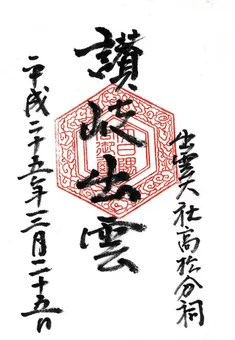 出雲大社高松分祠
讃岐出雲
平成二十五年三月二十五日